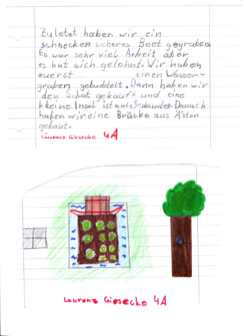 zuletzt haben wir ein
schnecken sicheres Beet gegraben
Es war sehr viel Arbeit aber
es hat sich gelohnt. Wir haben
zuerst einen Wasser-
graben gebuddelt. Dann haben wir
den Salat gekauft und eine
kleine Insel ist entstanden. Danach
haben wir eine Brücke aus Ästen
gebaut.
Laurenz Giesecke 4A
Laurenz Giesecke 4A